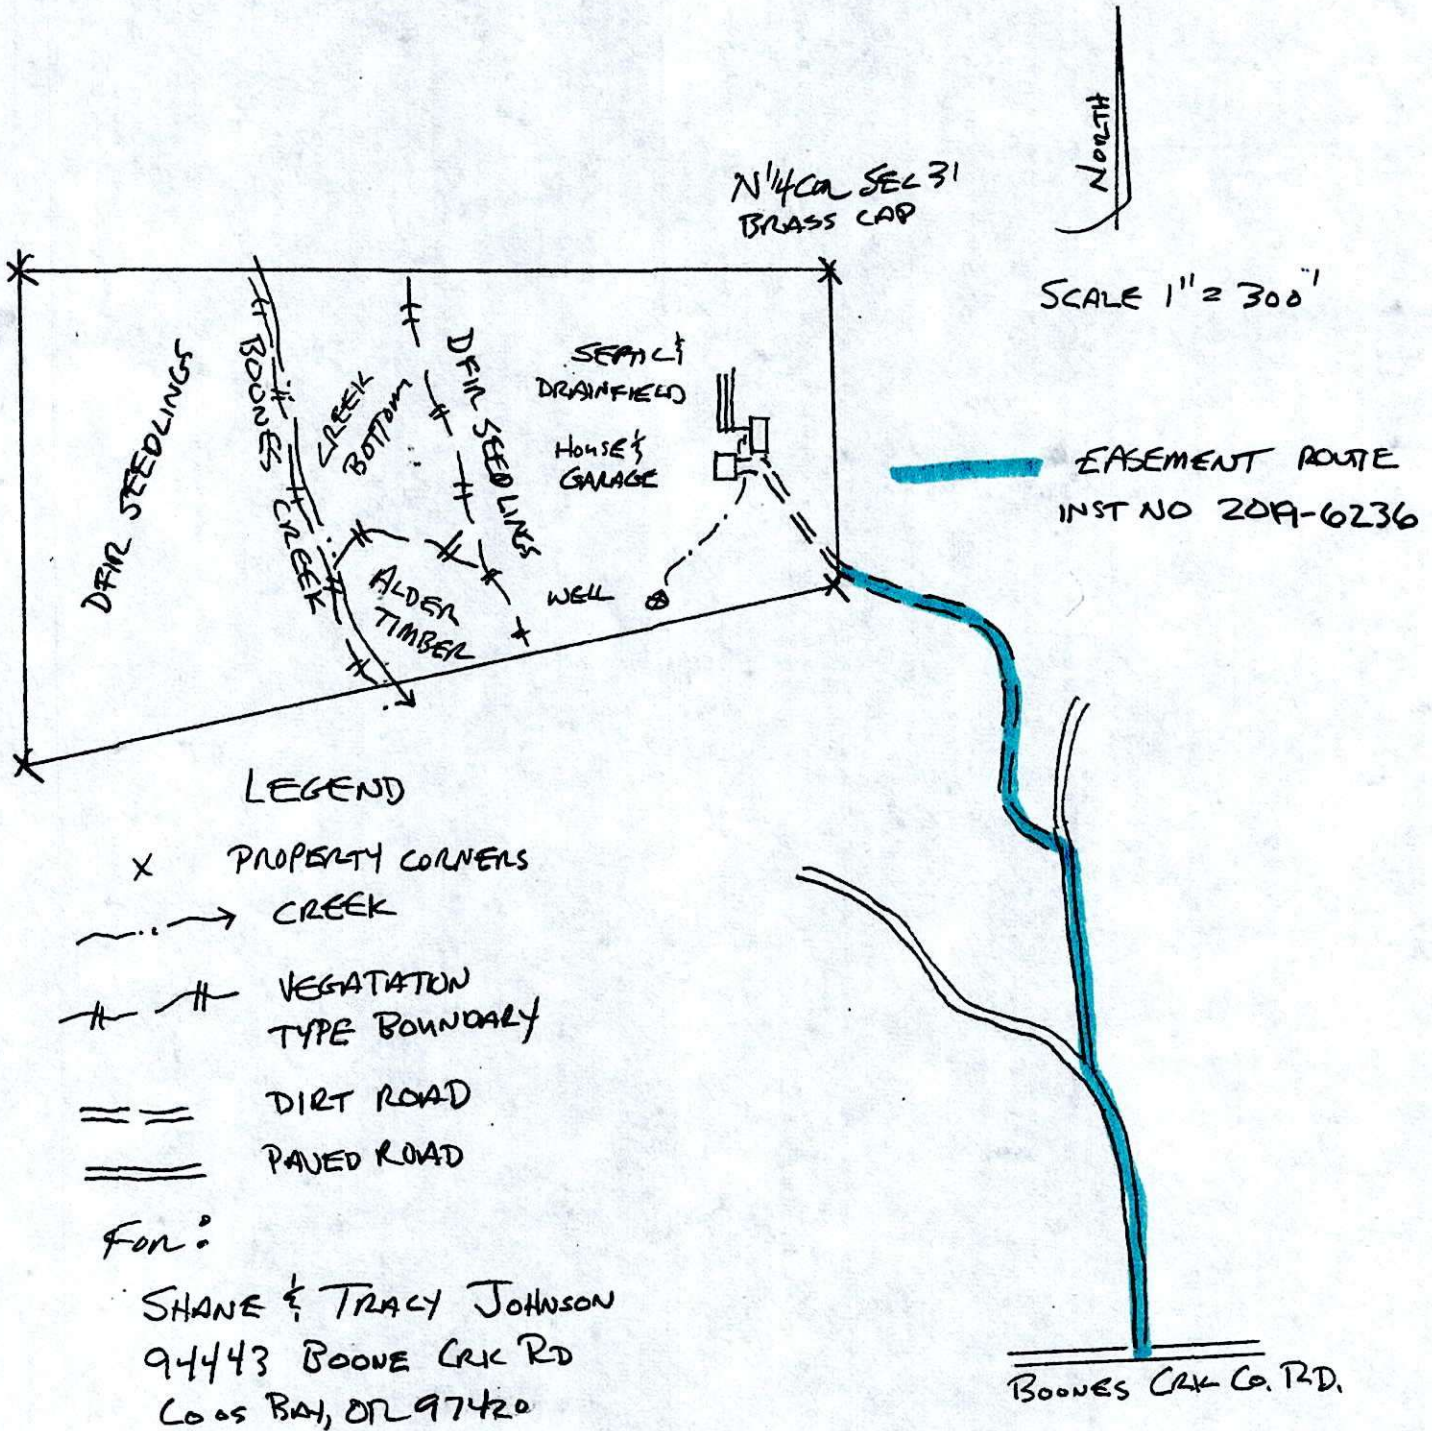 NORTH
N 1/4 COR SEC 31
BRASS CAP
SCALE 1" = 300'
DFIR SEEDLINGS
BOONES CREEK
CREEK
BOTTOM
DFIR SEEDLINGS
SEPTIC &
DRAINFIELD
HOUSE &
GARAGE
ALDER
TIMBER
WELL
EASEMENT ROUTE
INST NO 2019-6236
LEGEND
X PROPERTY CORNERS
CREEK
VEGATATION
TYPE BOUNDARY
DIRT ROAD
PAVED ROAD
FOR:
SHANE & TRACY JOHNSON
94443 BOONE CRK RD
COOS BAY, OR 97420
BOONES CRK CO. RD.